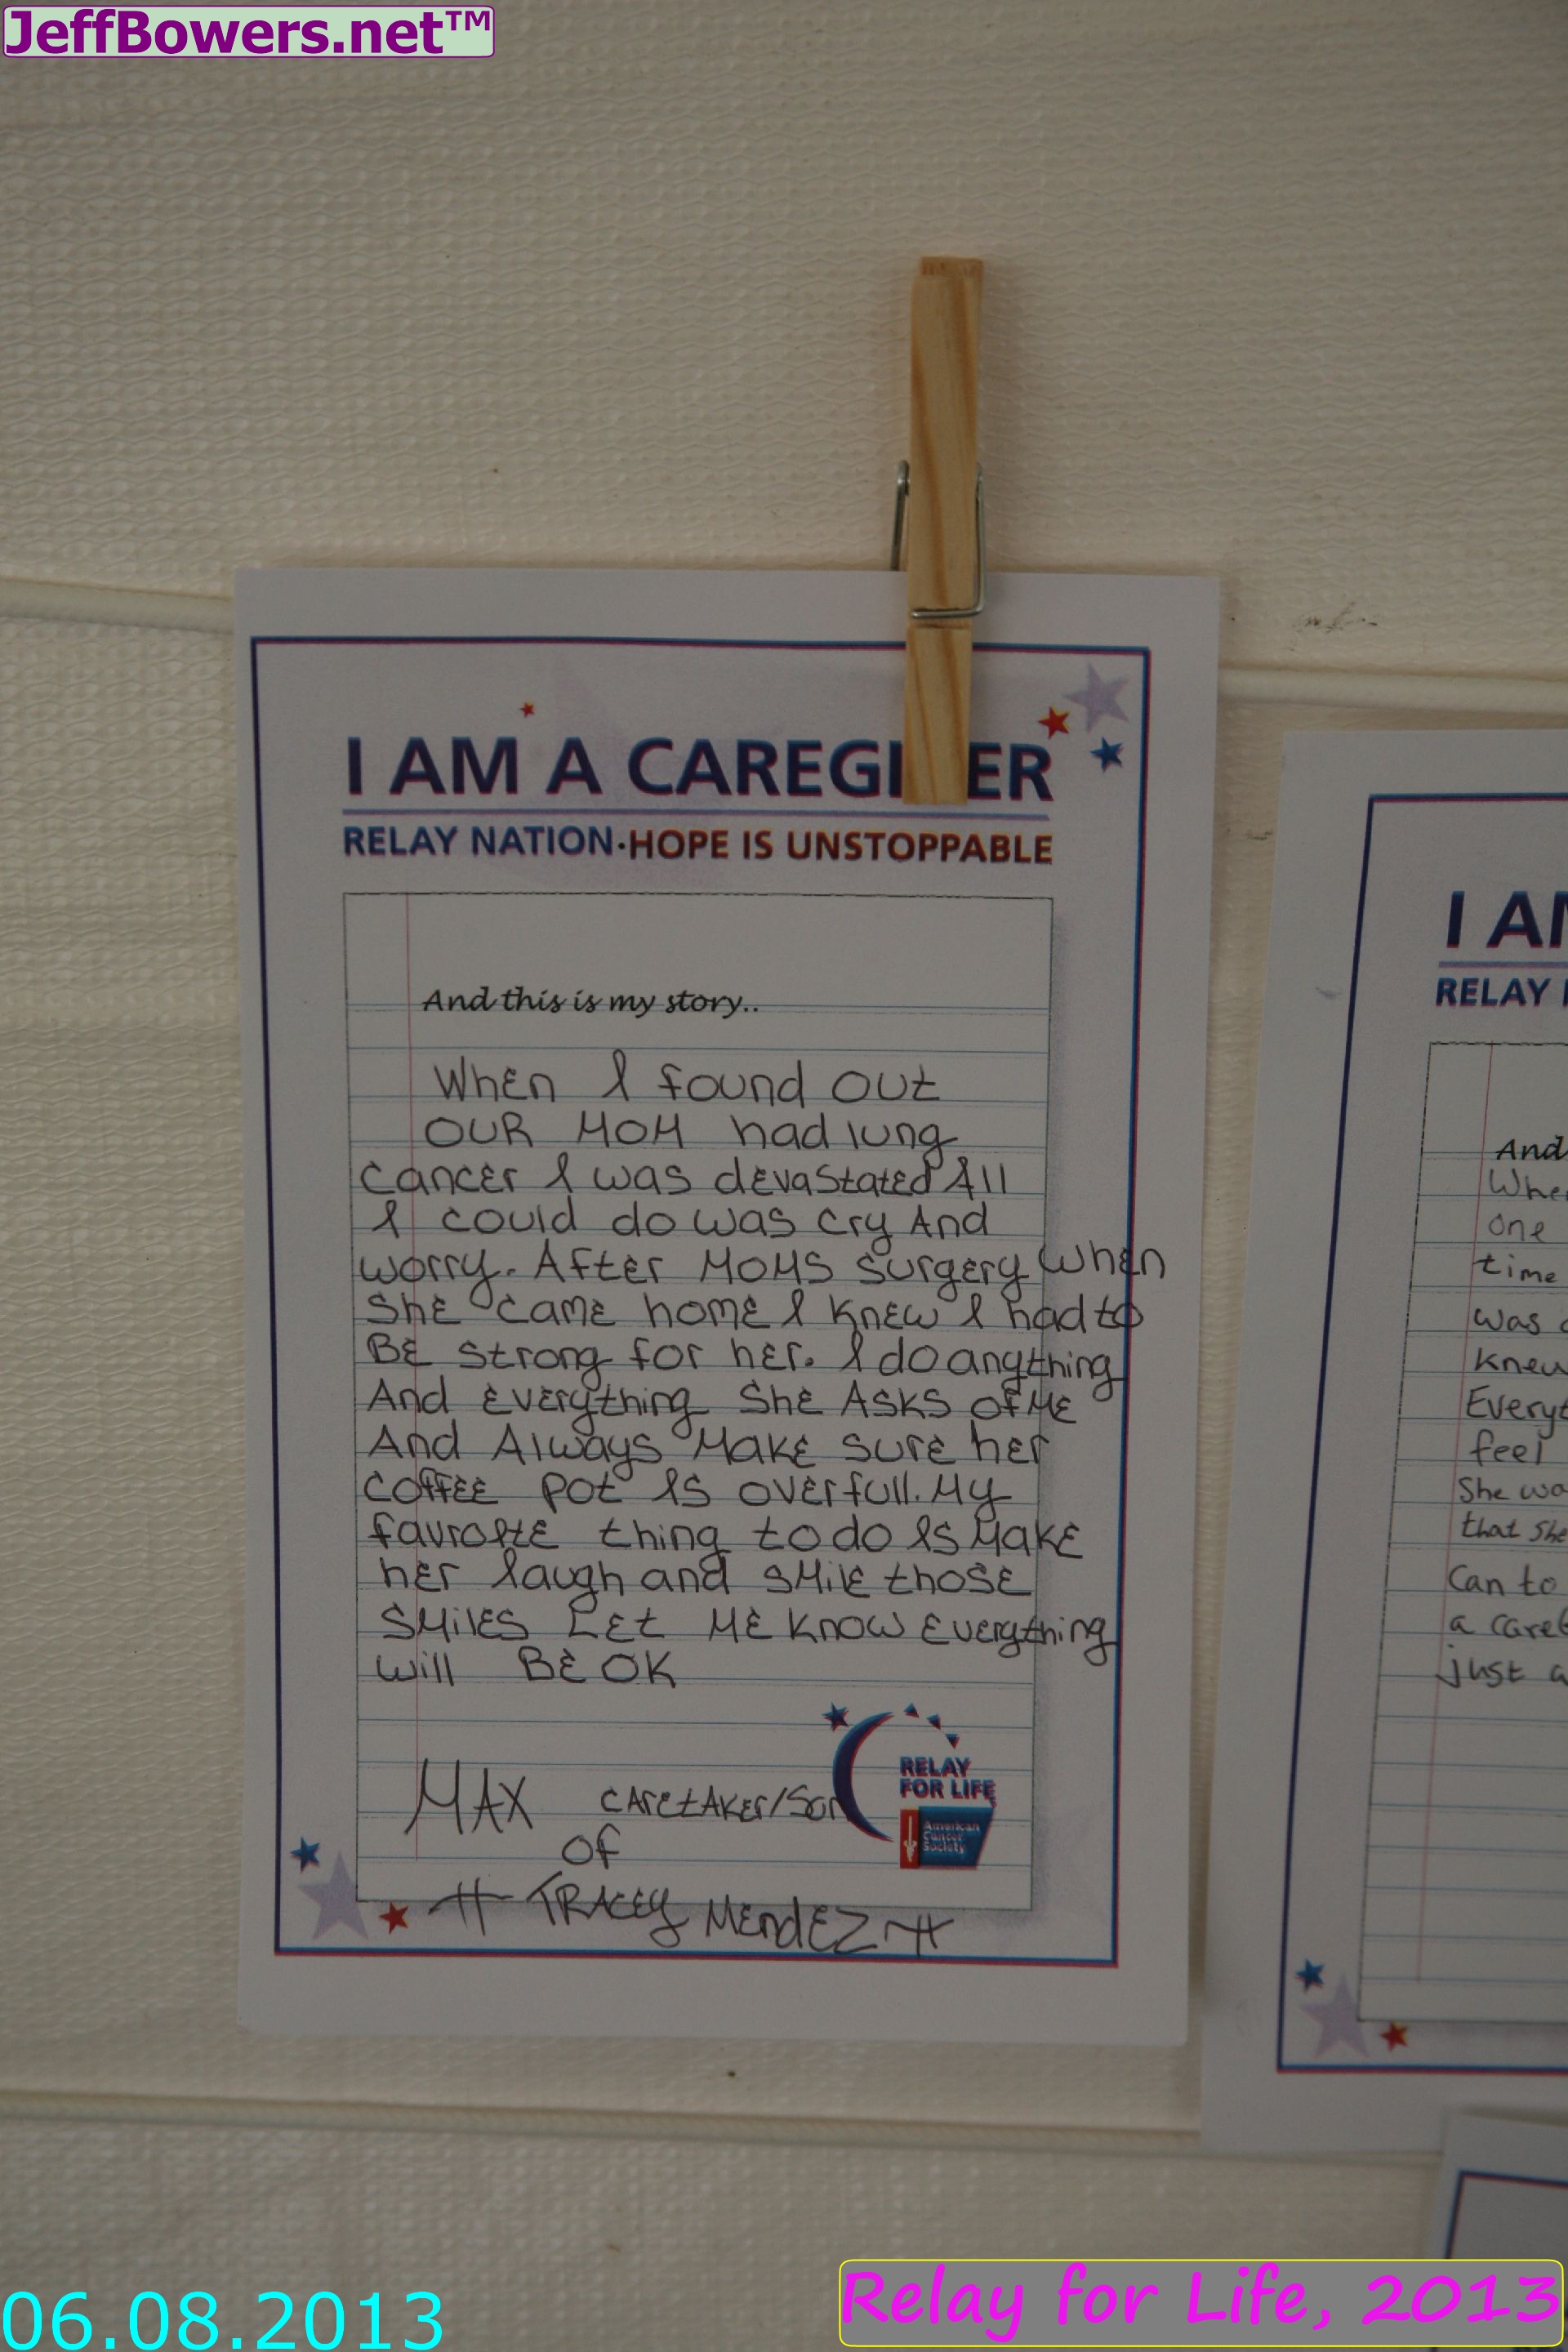 JeffBowers.net™
I AM A CAREGI ER
RELAY NATION·HOPE IS UNSTOPPABLE
And this is my story..
WhEn I found OUt
OUR MOM had lung
cancEr I was dEvaStatED All
I could do was cry And
worry. AftEr MOMS surgEry WhEn
ShE camE homE I knEw I had to
BE strong for hEr. I do anything
And EvErything ShE ASKS Of ME
And Always MakE surE hEr
COffEE pot IS ovErfull. My
favroItE thing to do IS MakE
hEr laugh and SMilE thosE
SMilES LEt ME know EvErything
will BE OK
MAX CArEtAkEr/Son
of
TRACEY MEndEZ
RELAY
FOR LIFE
American
Cancer
Society
I AM
RELAY
And
When
one
time
was
knew
feel
She
that she
Can to
a
just
06.08.2013
Relay for Life, 2013